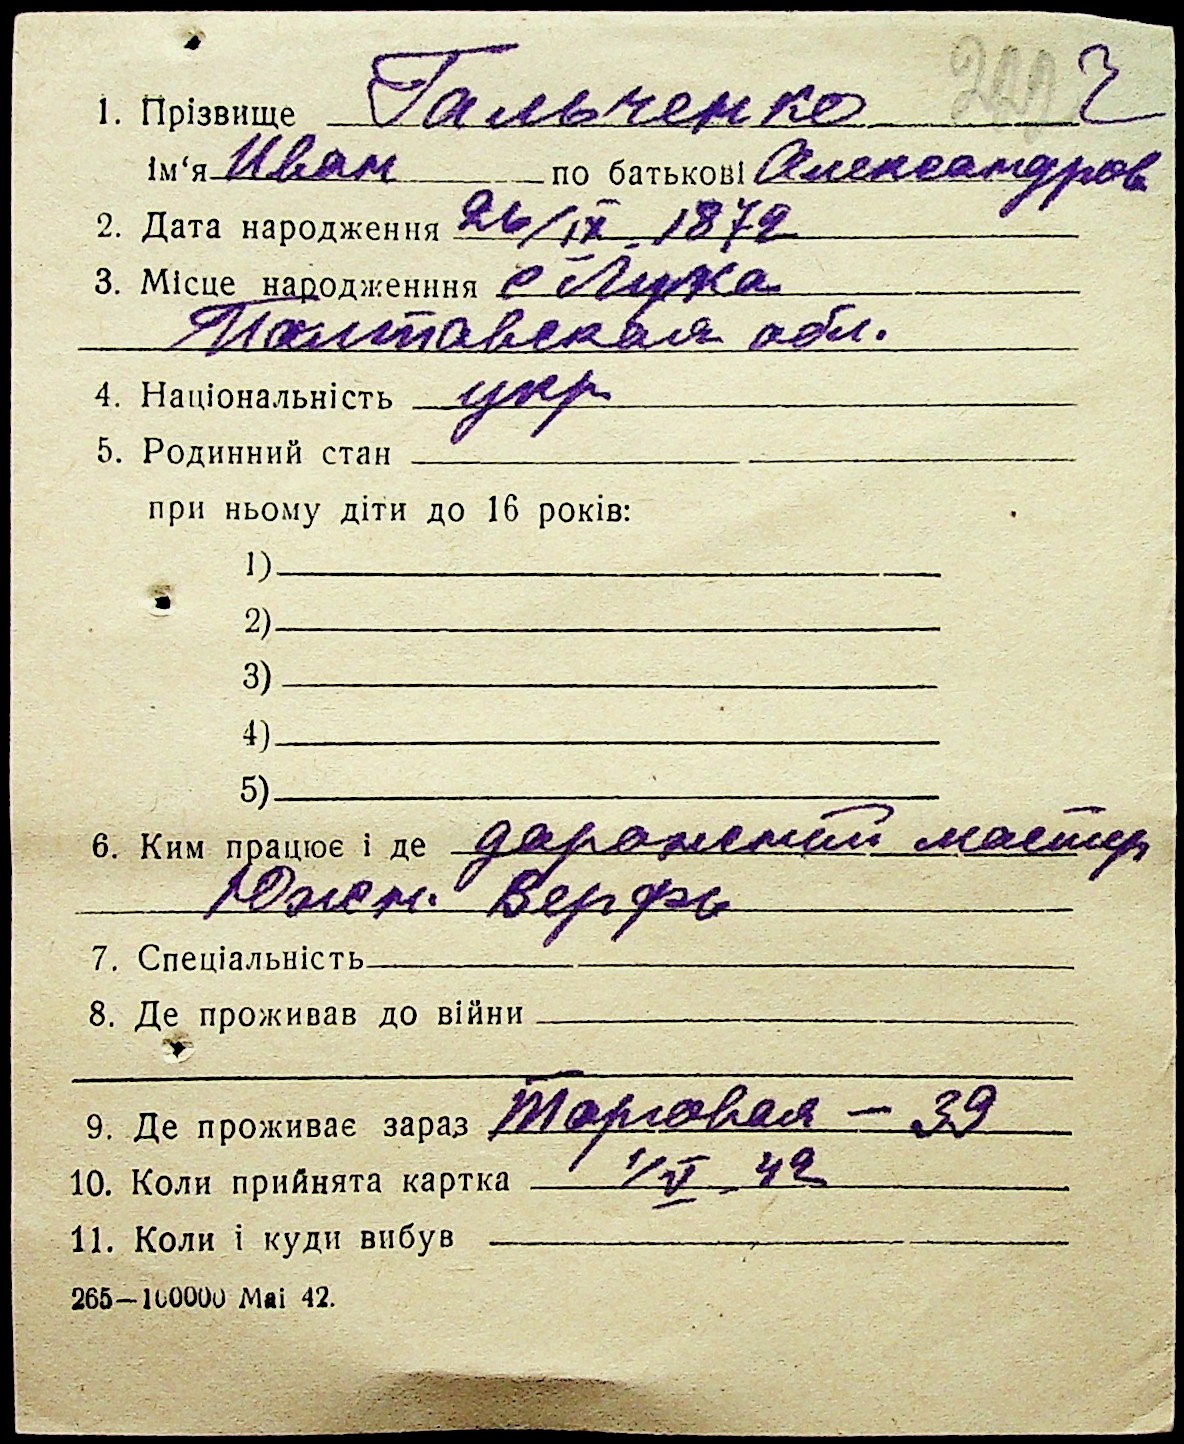 1. Прізвище Гальченко
ім‘я Иван по батькові Александров
2. Дата народження 26/IX. 1872
3. Місце народженння с Лука
Полтавская обл.
4. Національність укр
5. Родинний стан
при ньому діти до 16 років:
1)
2)
3)
4)
5)
6. Ким працює і де дорожный мастер
Южн. Верфь
7. Спеціальність
8. Де проживав до війни
9. Де проживає зараз Торговая — 39
10. Коли прийнята картка 1/V - 42
11. Коли і куди вибув
265—100000 Маі 42.